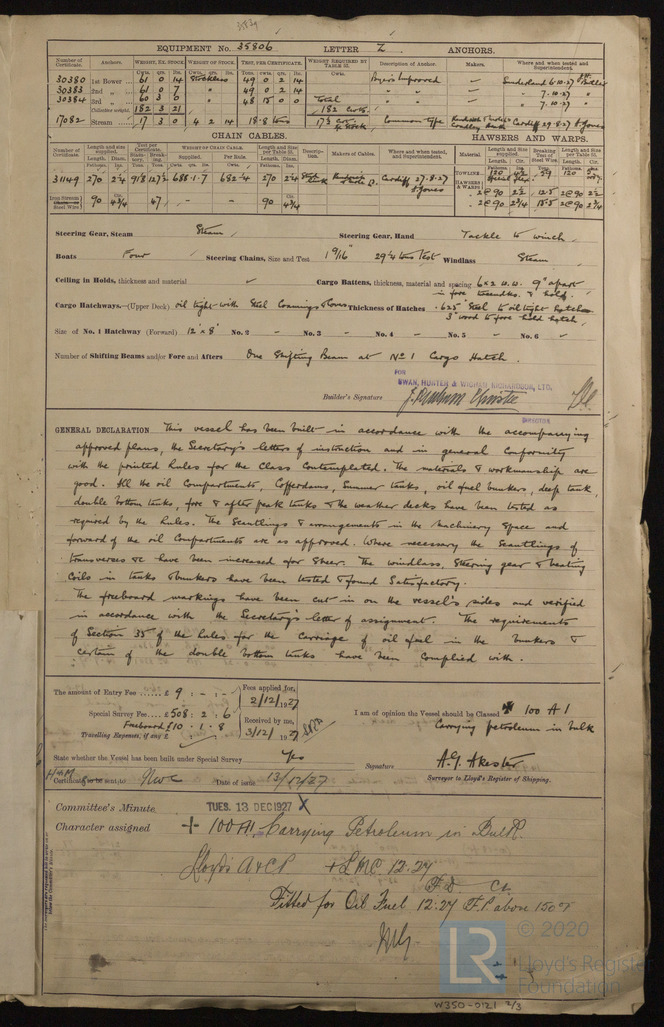 EQUIPMENT No. 35806 LETTER Z ANCHORS.
Number of Certificate. Anchors. WEIGHT, EX. STOCK. WEIGHT OF STOCK. TEST, PER CERTIFICATE. WEIGHT REQUIRED BY TABLE 31. Description of Anchor. Makers. Where and when tested and Superintendent.
30380 1st Bower 61 0 14 Stockless 49 0 2 14 Byers Improved Sunderland 6.10.27
30383 2nd " 61 0 7 " 49 0 2 14 " " " 7.10.27 "
30384 3rd " 60 3 0 " 48 15 0 0 Total " " " 7.10.27 "
Collective weight 182 3 21 182 cwts.
17082 Stream 17 3 0 4 2 14 18.8 tons 17½ cwt Ex Stock Common type Cradley Heath Cardiff 29.8.27 S. Jones
CHAIN CABLES. HAWSERS AND WARPS.
Number of Certificate. Length and size supplied. Test per Certificate. WEIGHT OF CHAIN CABLE. Length and size per Table 31. Description. Makers of Cables. Where and when tested, and Superintendent. Material. Length and size supplied. Breaking Test of Steel Wire. Length and size per Table 31.
31149 270 2¼ 91/8 127½ 688.1.7 682¼ 270 2¼ Stud Link Cardiff 27.8.27 S. Jones TOWLINE 120 4½ 59 120
HAWSERS & WARPS 2@90 2½ 12.5 2@90 2½
90 4¾ 47 - - 90 4¾ 2@90 2¾ 15.5 2@90 2¾
Steering Gear, Steam Steam Steering Gear, Hand Tackle to winch
Boats Four Steering Chains, Size and Test 1 9/16" 29¼ tons Test Windlass Steam
Ceiling in Holds, thickness and material Cargo Battens, thickness, material and spacing 6x2 W.W. 9" apart
in fore tweendks. & hold.
Cargo Hatchways.—(Upper Deck) oil tight with Steel Coamings & Covers Thickness of Hatches .625" Steel to oil tight hatches
3" wood to fore hold hatch
Size of No. 1 Hatchway (Forward) 12' x 8' No. 2 - No. 3 - No. 4 - No. 5 - No. 6 -
Number of Shifting Beams and/or Fore and Afters One Shifting Beam at No 1 Cargo Hatch.
FOR
SWAN, HUNTER & WIGHAM RICHARDSON, LTD.
Builder's Signature J. Denham Christie
DIRECTOR
GENERAL DECLARATION This vessel has been built in accordance with the accompanying
approved plans, the Secretary's letters of instruction and in general conformity
with the printed Rules for the Class Contemplated. The materials & workmanship are
good. All the oil Compartments, Cofferdams, Summer tanks, oil fuel bunkers, deep tank,
double bottom tanks, fore & after peak tanks & the weather decks have been tested as
required by the Rules. The Scantlings & arrangements in the Machinery Space and
forward of the oil Compartments are as approved. Where necessary the Scantlings of
transverses &c have been increased for Sheer. The windlass, Steering gear & heating
Coils in tanks & bunkers have been tested & found Satisfactory.
The freeboard markings have been cut in on the vessel's sides and verified
in accordance with the Secretary's letter of assignment. The requirements
of Section 35 of the Rules for the Carriage of oil fuel in the bunkers &
certain of the double bottom tanks have been complied with.
The amount of Entry Fee £ 9 : - : - Fees applied for, 2/12/1927
Special Survey Fee £508 : 2 : 6 I am of opinion the Vessel should be Classed ✠ 100 A 1
Freeboard £10 . 1 . 8 Received by me, 3/12/1927 Carrying petroleum in bulk
Travelling Expenses, if any £
State whether the Vessel has been built under Special Survey Yes Signature A.G. Akester
Certificate sent to Nwc Date of issue 13/12/27 Surveyor to Lloyd's Register of Shipping.
Committee's Minute TUES. 13 DEC 1927
Character assigned + 100 A1 Carrying Petroleum in Bulk.
Lloyd's A&CP + LMC 12.27
FD CL
Fitted for Oil Fuel 12.27 F.P. above 150°F
LR © 2020
Lloyd's Register
Foundation
W350-0121 2/3